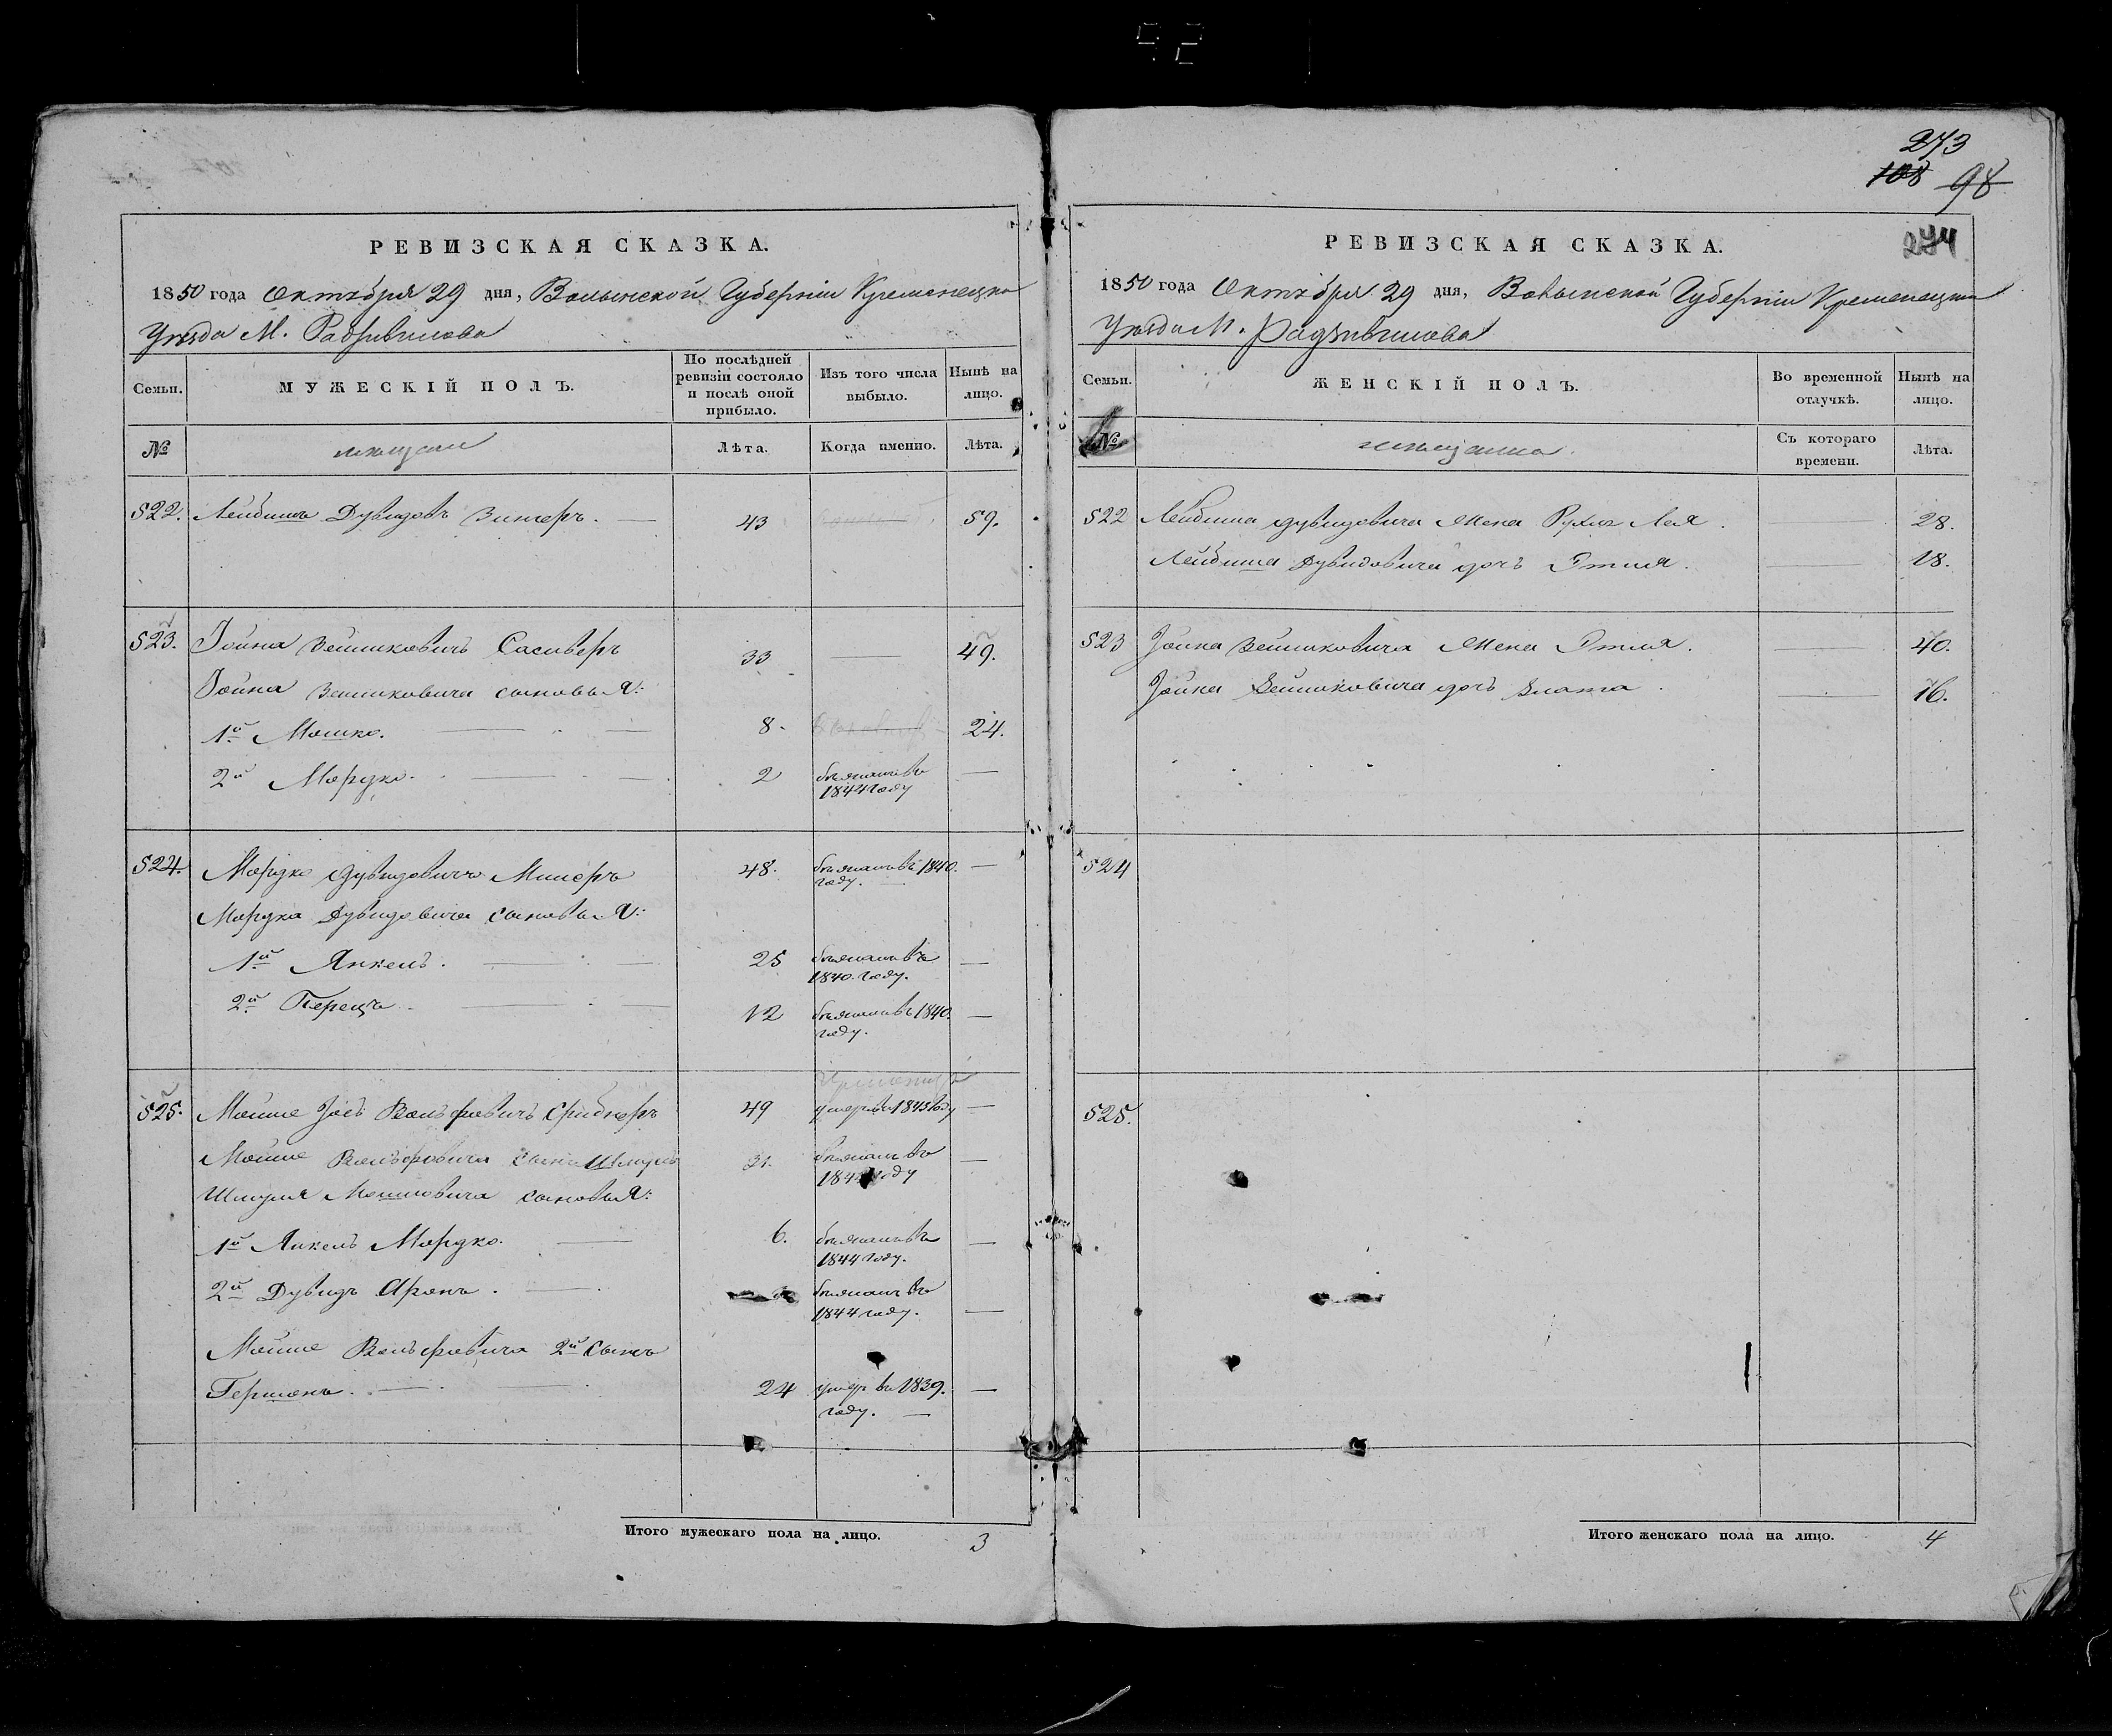 273
108 98
274
РЕВИЗСКАЯ СКАЗКА.
1850 года Октября 29 дня, Волынской Губерніи Кременецкаго
Уѣзда М. Радзивилова
Семьи.
МУЖЕСКІЙ ПОЛЪ.
По послѣдней ревизіи состояло и послѣ оной прибыло.
Изъ того числа выбыло.
Нынѣ на лицо.
№
мещане
Лѣта.
Когда именно.
Лѣта.
522. Лейбишъ Дувидовъ Зингеръ. 43 59.
523. Іойна Зейликовичъ 33 49.
Іойна Зейликовича сыновья:
1й Мошко. 8. 24.
2й Мордко. 2 бѣжалъ въ
1844 году
524. Мордко Дувидовичъ 48. бѣжалъ въ 1840.
году.
Мордка Дувидовича сыновья:
1й Янкель. 25 бѣжалъ въ
1840. году.
2й Перецъ. 12 бѣжалъ въ 1840.
году.
525. Мойше Іосъ Вольфовичъ 49 умеръ въ 1845 году
Мойше Вольфовича сынъ Шмуль 31. бѣжалъ въ
году
Шмуля Мошковича сыновья:
1й Янкель Мордко. 6. бѣжалъ въ
1844 году.
2й Дувидъ Аронъ. бѣжалъ въ
1844 году.
Мойше Вольфовича 2й сынъ
Гершонъ. 24 умеръ въ 1839.
году.
Итого мужескаго пола на лицо. 3
РЕВИЗСКАЯ СКАЗКА.
1850 года Октября 29 дня, Волынской Губерніи Кременецкаго
Уѣзда М. Радзивилова
Семьи.
ЖЕНСКІЙ ПОЛЪ.
Во временной отлучкѣ.
Нынѣ на лицо.
№
мещанки
Съ котораго времени.
Лѣта.
522 Лейбиша Дувидовича жена Рухля Лея. 28.
Лейбиша Дувидовича дочь Этля. 18.
523 Іойна Зейликовича жена Этля. 40.
Іойна Зейликовича дочь Злата. 16.
524
525.
Итого женскаго пола на лицо. 4